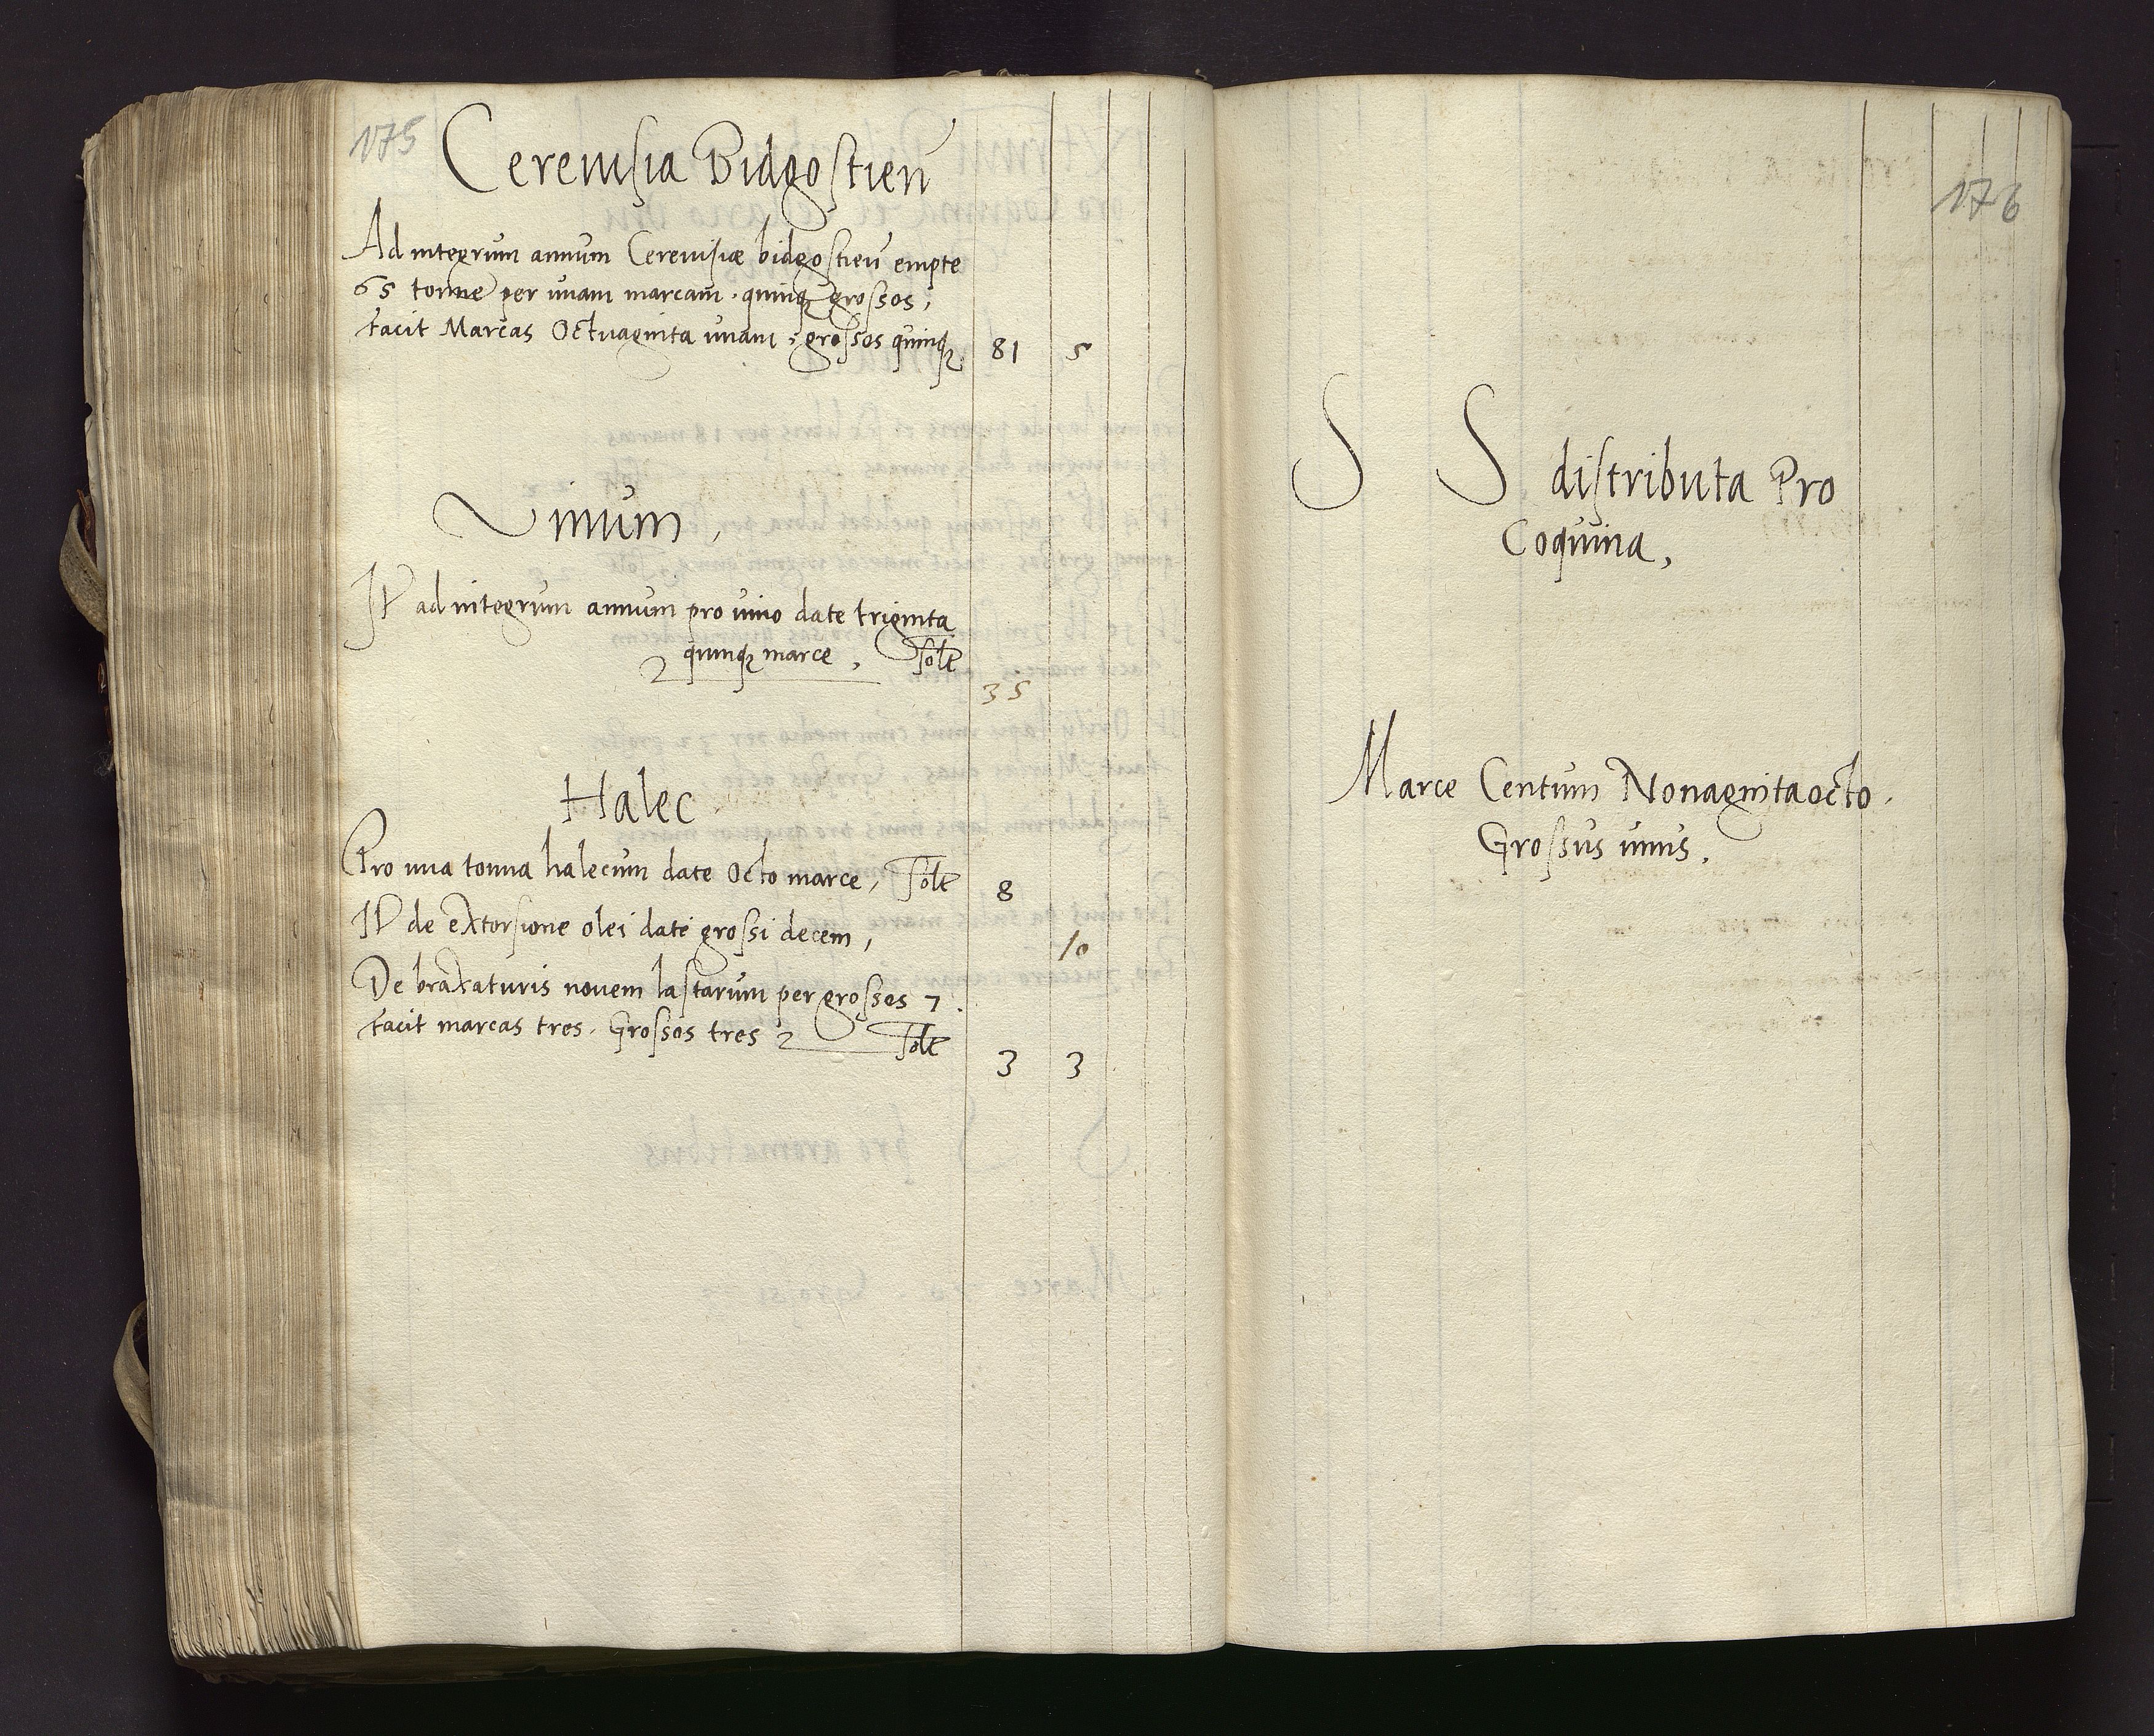 175
Cerevisia Bidgostien̄
Ad integrum annum Cerevisiæ bidgostien̄ empte
65 tonne per unam marcam. quinqʒ grossos,
facit Marcas Octuaginta unam. grossos quinqʒ. 81 5
Vinum,
Itē ad integrum annum pro vino date triginta
quinqʒ marce, Solt
35
Halec
Pro una tonna halecum date Octo marce, Solt 8
Itē de extorsione olei dati grossi decem, 10
De braxaturis novem lastarum per grossos 7.
facit marcas tres. Grossos tres Solt 3 3
176
S S distributa Pro
Coquina,
Marce Centum Nonagintaocto.
Grossus unus.